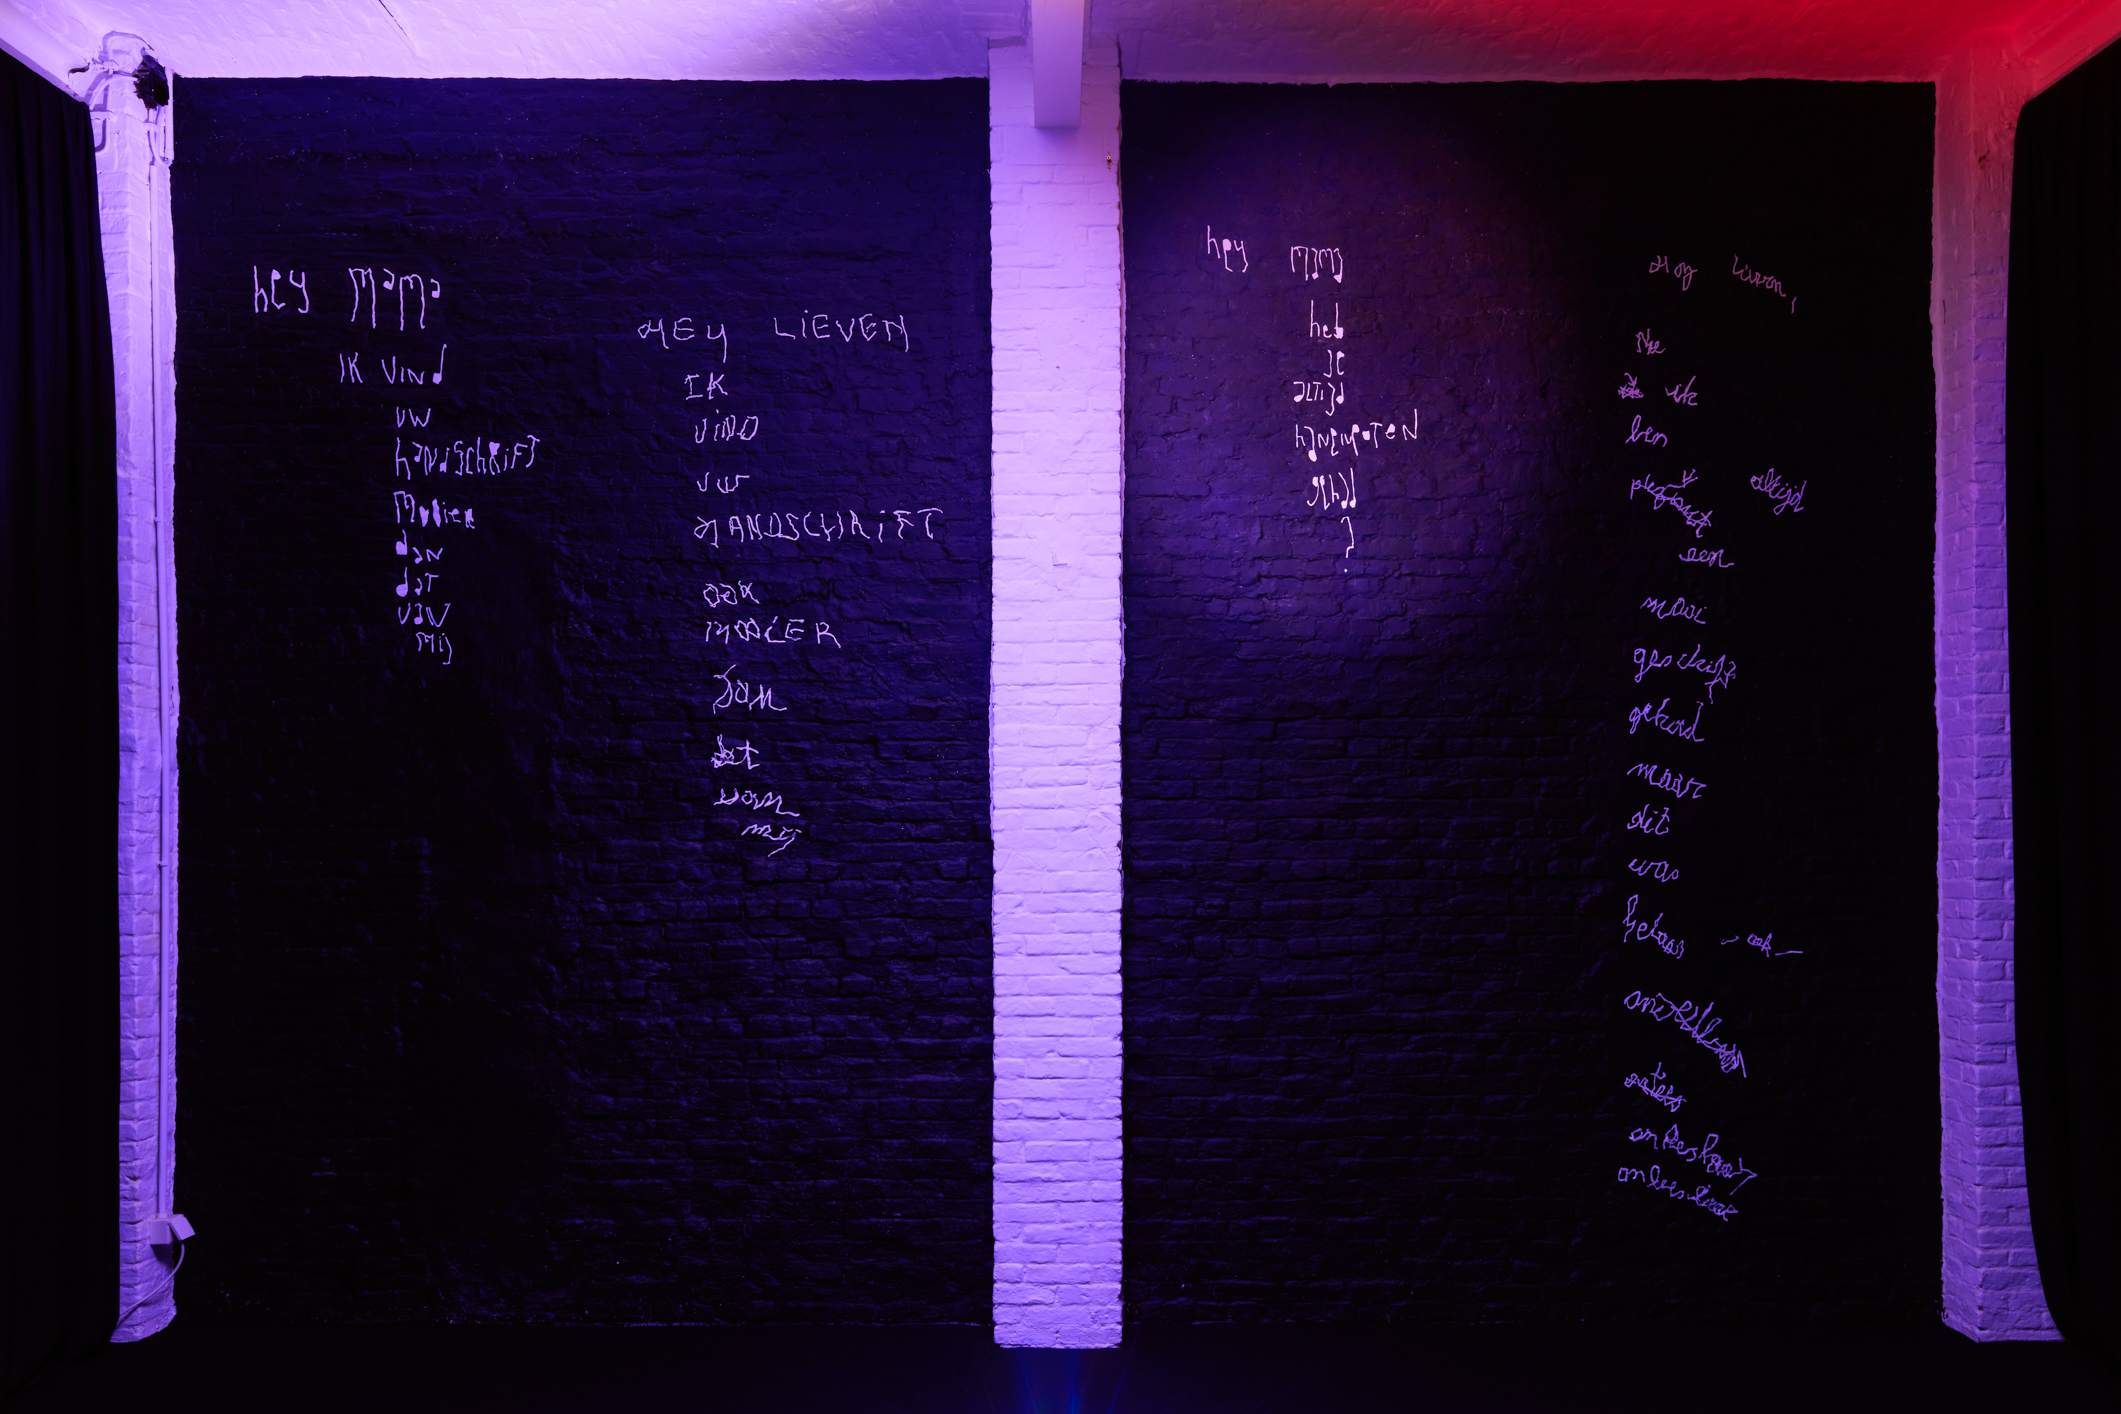 hey mama
ik vind
uw
handschrift
mooier
dan
dat
van
mij
HEY LiEVEN
IK
ViND
uw
HANDSCHRiFT
ook
MOOiER
dan
dat
van
mij
hey mama
heb
je
altijd
hanenpoten
gehad
?
Hey Lieven,
Nee
ik
ben
altijd
een
mooi
geschrift
gehad
maar
dit
was
helaas ook
onleesbaar
onleesbaar